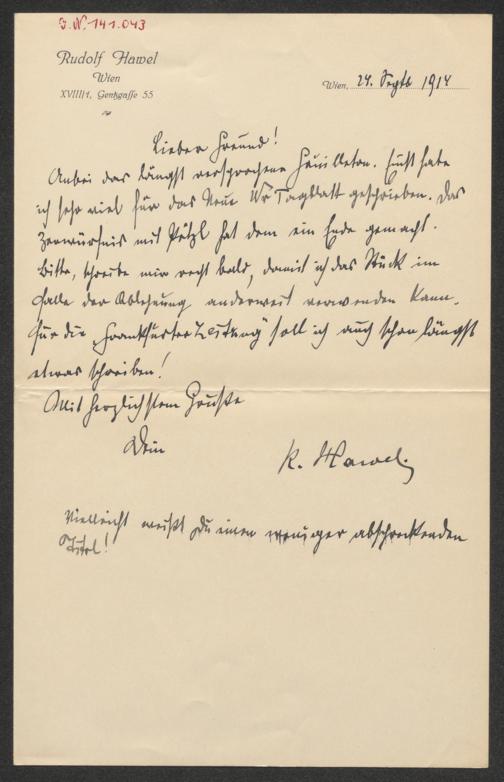 J.N. 141.043
Rudolf Hawel
Wien
XVIII/1, Gentzgasse 55
Wien, 24. Septb 1914
Lieber Freund!
Anbei das längst versprochene Feuilleton. Einst habe
ich sehr viel für das Neue Wr Tagblatt geschrieben. Das
Zerwürfnis mit Pötzl hat dem ein Ende gemacht.
Bitte, schreibe mir recht bald, damit ich das Stück im
Falle der Ablehnung anderweit verwenden kann.
Für die „Frankfurter Zeitung" soll ich auch schon längst
etwas schreiben!
Mit herzlichstem Gruße
Dein
R. Hawel.
Vielleicht weißt Du einen weniger abschreckenden
Titel!